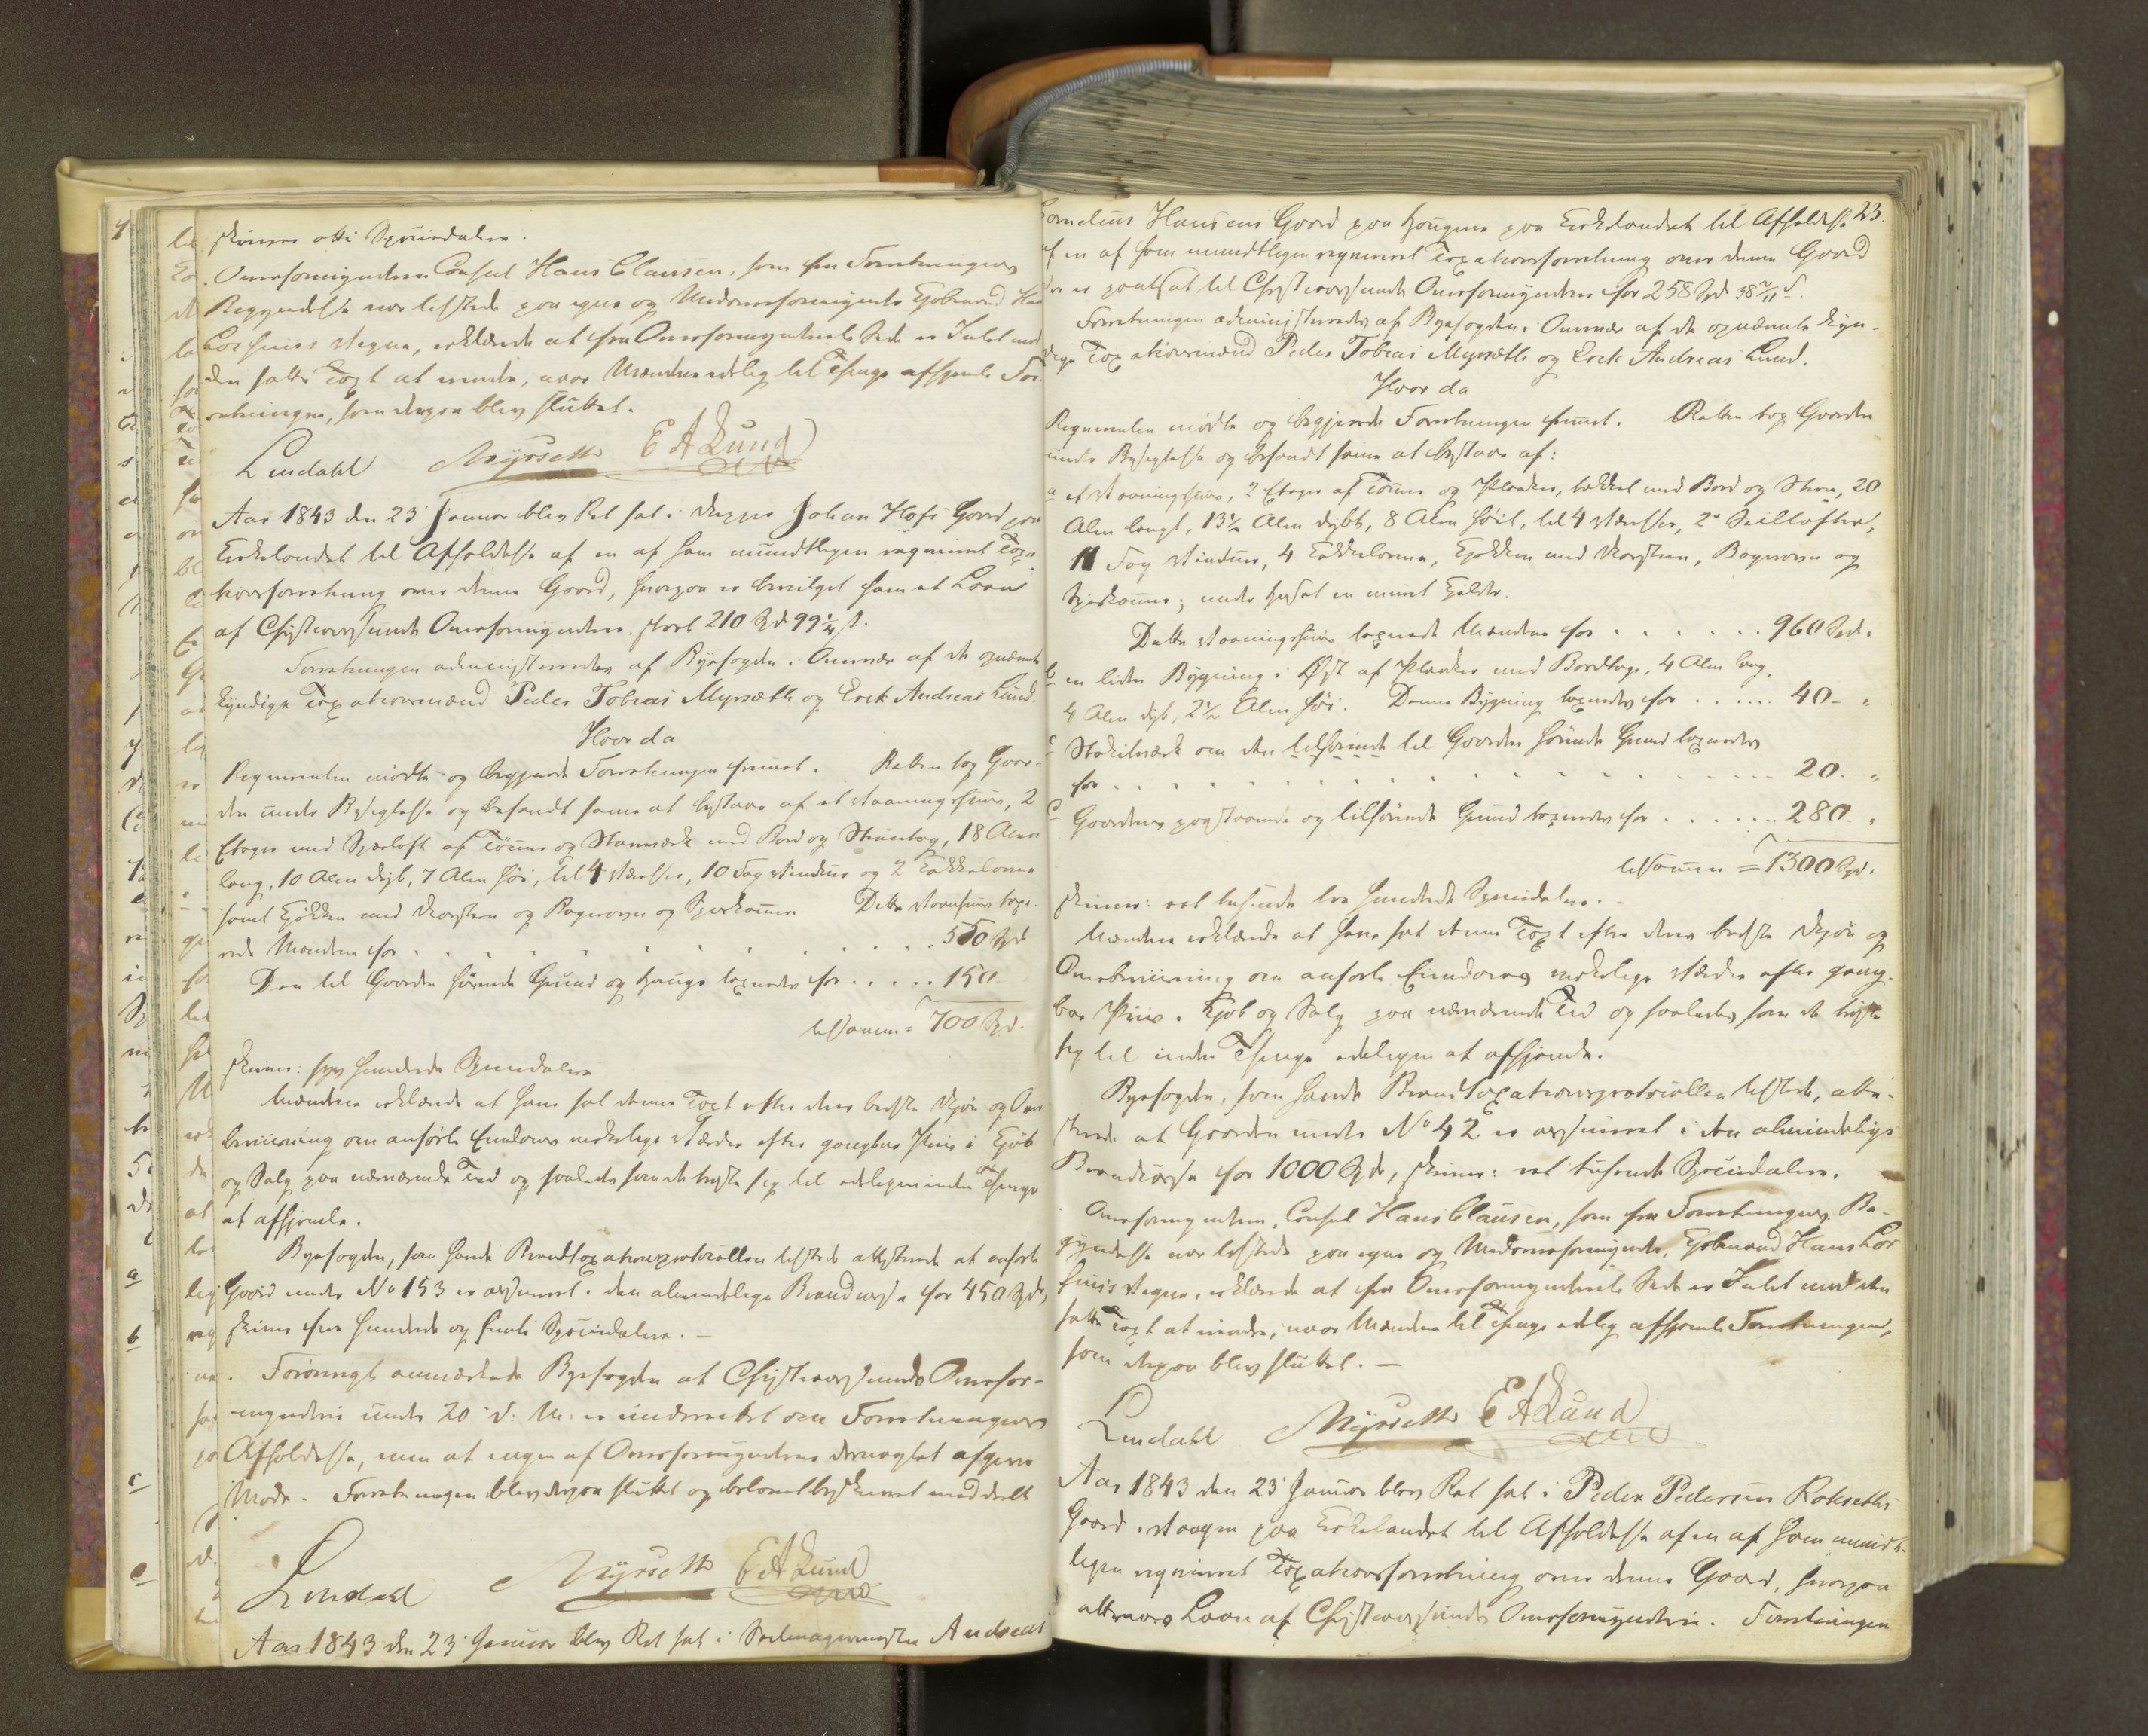 skriver otti Speciedaler.
Overformynderen Consul Hans Clausen, som fra Forretningens
Begyndelse var tilstede paa egne og Medoverformynder Kjøbmand Hans
Loshuus Vegne, erklærede at fra Overformynderiets Side er Intet mod
den satte Taxt at erindre, naar Mændene edelig til Thinge afhjemle For-
retningen, som derpaa blev sluttet.
Lindahl Myrseth E A Lund
Aar 1843 den 23 Januar blev Ret sat i Johan Hofs Gaard paa
Kirkelandet til Afholdelse af en af ham mundtligen reqvireret Taxa-
tionsforretning over denne Gaard, hvorpaa er bevilget ham et Laan
af Christiansunds Overformynderi stort 210 Spd 99 1/4 s.
Forretningen administreredes af Byefogden i Overvær af de opnævnte
kyndige Taxationsmænd Peder Tobias Myrsæth og Erik Andreas Lund.
Hvor da
Reqvirenten mødte og begjærede Forretningen fremmet. Retten tog Gaar-
den under Besigtelse og befandt samme at bestaae af et Vaaningshuus, 2
Etager med Spærloft af Tømmer og Stavværk med Bord og Steentag, 18 Alen
lang, 10 Alen dyb, 7 Alen høi, til 4 Værelser, 10 Fag Vinduer og 2 Kakkelovne
samt Kjøkken med Skorsteen og Bagerovn og Spiiskammer. Dette Vaanhuus taxe-
rede Mændene for . . . . . . . . . . 550 Spd
Den til Gaarden hørende Grund og Hauge taxeredes for . . . . . 150
tilsammen = 700 Spd.
skriver: syv hundrede Speciedaler
Mændene erklærede at have sat denne Taxt efter deres bedste Skjøn og Over-
beviisning om anførte Eiendoms virkelige Værdie efter gangbar Priis i Kjøb
og Salg paa nærværende Tid og saaledes som de trøste sig til edeligen inden Thinge
at afhjemle.
Byefogden, som havde Brandtaxationsprotocollen tilstede attesterede at anførte
Gaard under No 153 er assureret i den almindelige Brandcasse for 450 Spd,
skriver fire hundrede og femti Speciedaler. —
Forøvrigt anmærkede Byefogden at Christiansunds Overfor-
mynderi under 20 d: M: er underrettet om Forretningens
Afholdelse, men at ingen af Overformynderne derved afgave
Møde. Forretningen blev derpaa sluttet og
Lindahl Myrseth E A Lund
Aar 1843 den 23 Januar blev Ret sat i Seilmagermester Andreas
23.
Cornelius Hansens Gaard paa Haugene paa Kirkelandet til Afholdelse
af en af ham mundtligen reqvireret Taxationsforretning over denne Gaard
der er pantsat til Christiansunds Overformynderi for 258 Spd 38 2/11 s.
Forretningen administreredes af Byefogden i Overvær af de opnævnte kyn-
dige Taxationsmænd Peder Tobias Myrsæth og Erik Andreas Lund.
Hvor da
Reqvirenten mødte og begjærede Forretningen fremmet. Retten tog Gaarden
under Besigtelse og befandt samme at bestaae af:
a et Vaaningshuus, 2 Etager af Tømmer og Planker, tækket med Bord og Steen, 20
Alen langt, 13 1/2 Alen dybt, 8 Alen høit, til 4 Værelser, 2 Seilloftere,
11 Fag Vinduer, 4 Kakkelovne, Kjøkken med Skorsteen, Bagerovn og
Spiiskammer; under Huset en muret Kjelder.
Dette Vaaningshuus taxerede Mændene for . . . . . . 960 Spd.
b en liden Bygning i Øst af Planker med Bordtag, 4 Alen lang,
4 Alen dyb, 2 1/2 Alen høi. Denne Bygning taxeredes for . . . . . . 40 - "
c Stakitværk om den tilhørende til Gaarden hørende Grund taxeredes
for . . . . . . . . . . . . . . . . 20. "
d Gaardens paastaaende og tilhørende Grund taxeredes for . . . . . . . 280. "
tilsammen = 1300 Spd.
skriver: eet tusinde tre hundrede Speciedaler. -
Mændene erklærede at have sat denne Taxt efter deres bedste Skjøn og
Overbeviisning om anførte Eiendoms virkelige Værdie efter gang-
bar Priis i Kjøb og Salg paa nærværende Tid og saaledes som de trøste
sig til inden Thinge edeligen at afhjemle.
Byefogden, som havde Brandtaxationsprotocollen tilstede, atte-
sterede at Gaarden under No 42 er assureret i den almindelige
Brandcasse for 1000 Spd, skriver: eet tusende Speciedaler.
Overformynderen, Consul Hans Clausen, som fra Forretningens Be-
gyndelse var tilstede paa egne og Medoverformynder, Kjøbmand Hans Los-
huus's Vegne, erklærede at fra Overformynderiets Side er Intet mod den
satte Taxt at erindre, naar Mændene til Thinge edelig afhjemle Forretningen,
som derpaa blev sluttet. —
Lindahl Myrseth E A Lund
Aar 1843 den 23 Januar blev Ret sat i Peder Pedersen Roksetts
Gaard i Vaagen paa Kirkelandet til Afholdelse af en af ham mundt-
ligen reqvireret Taxationsforretning over denne Gaard, hvorpaa
Laan af Christiansunds Overformynderi. Forretningen